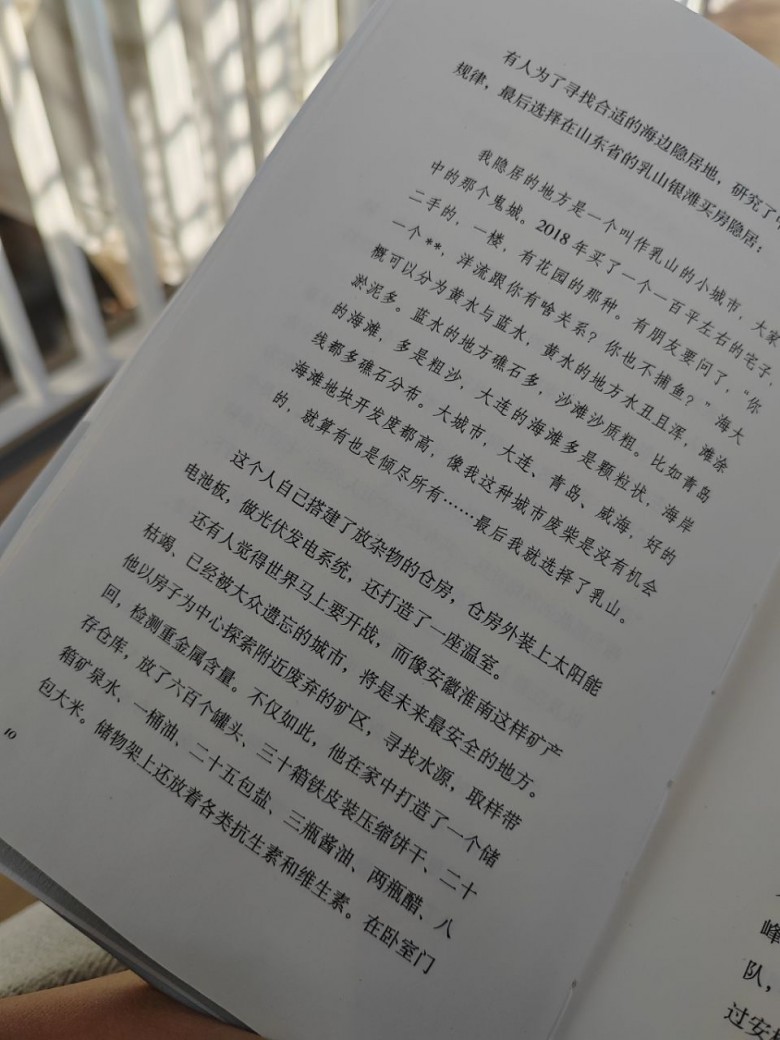 有人为了寻找合适的海边隐居地，研究了
规律，最后选择在山东省的乳山银滩买房隐居：
我隐居的地方是一个叫作乳山的小城市，大家
中的那个鬼城。2018年买了一个一百平左右的宅子，
二手的，一楼，有花园的那种。有朋友要问了，“你
一个**，洋流跟你有啥关系？你也不捕鱼？”海大
概可以分为黄水与蓝水，黄水的地方水丑且浑，滩涂
淤泥多。蓝水的地方礁石多，沙滩沙质粗。比如青岛
的海滩，多是粗沙，大连的海滩多是颗粒状，海岸
线都多礁石分布。大城市，大连、青岛、威海，好的
海滩地块开发度都高，像我这种城市废柴是没有机会
的，就算有也是倾尽所有……最后我就选择了乳山。
这个人自己搭建了放杂物的仓房，仓房外装上太阳能
电池板，做光伏发电系统，还打造了一座温室。
还有人觉得世界马上要开战，而像安徽淮南这样矿产
枯竭、已经被大众遗忘的城市，将是未来最安全的地方。
他以房子为中心探索附近废弃的矿区，寻找水源，取样带
回，检测重金属含量。不仅如此，他在家中打造了一个储
存仓库，放了六百个罐头、三十箱铁皮装压缩饼干、二十
箱矿泉水、一桶油、二十五包盐、三瓶酱油、两瓶醋、八
包大米。储物架上还放着各类抗生素和维生素。在卧室门
10
峰
队，
过安